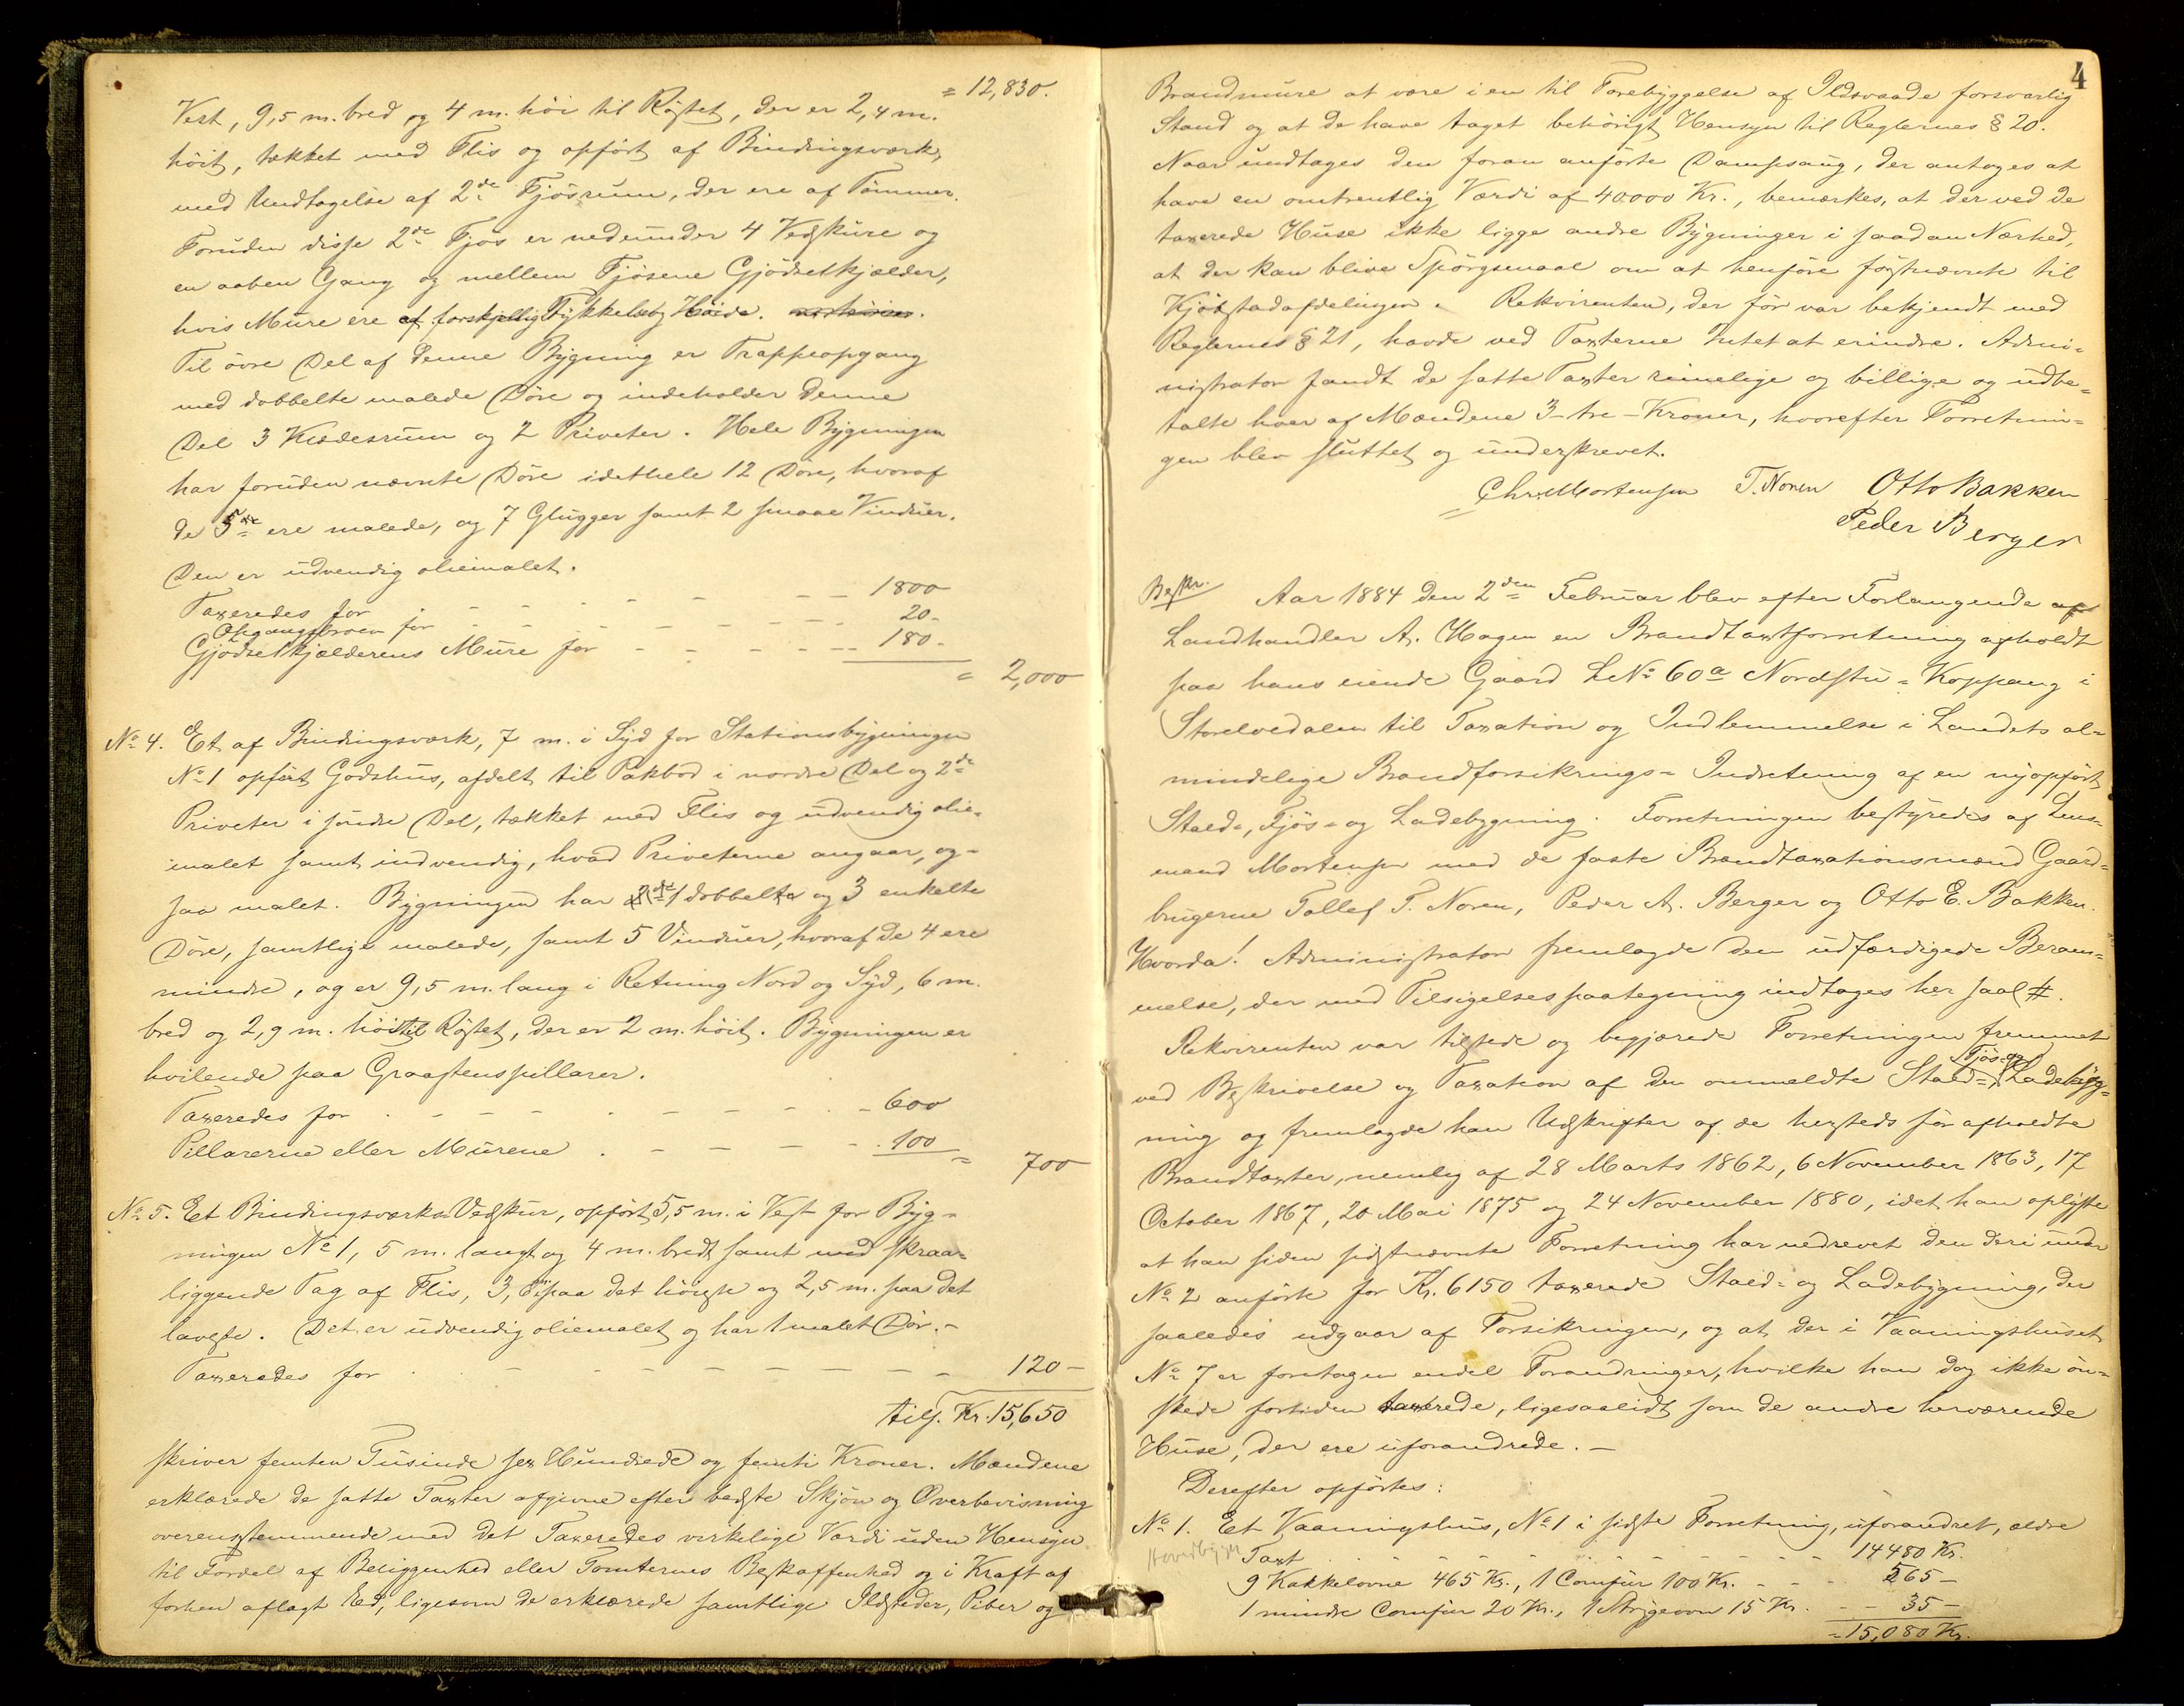 = 12,830.
Vest, 9,5 m. bred og 4 m. höi til Röstet, der er 2,4 m.
höit, tækket med Flis og opfört af Bindingsværk,
med Undtagelse af 2de Fjösrum, der ere af Tömmer.
Foruden disse 2de Fjös er nedeunder 4 Vedskure og
en aaben Gang og mellem Fjösene Gjödselkjælder,
hvis Mure ere af forskjellig Tykkelse og Höide.
Til övre Del af denne Bygning er Trappeopgang
med dobbelte malede Döre og indeholder denne
Del 3 Klædesrum og 2 Priveter. Hele Bygningen
har foruden nævnte Döre idethele 12 Döre, hvoraf
de 5 ere malede, og 7 Glugger samt 2 smaae Vinduer.
Den er udvendig oliemalet.
Taxeredes for - - - - - 1800
Opgangsbroen for - - - - - 20-
Gjödselkjælderens Mure for - - - - - 180-
= 2,000
No 4. Et af Bindingsværk, 7 m. i Syd for Stationsbygningen
No 1 opfört Godshus, afdelt til Pakbod i nordre Del og 2de
Priveter i söndre Del, tækket med Flis og udvendig olie-
malet samt indvendig, hvad Priveterne angaar, og-
saa malet. Bygningen har 1 dobbelt og 3 enkelte
Döre, samtlige malede, samt 5 Vinduer, hvoraf de 4 ere
mindre, og er 9,5 m. lang i Retning Nord og Syd, 6 m.
bred og 2,9 m. höi til Röstet, der er 2 m. höit. Bygningen er
hvilende paa Graastenspillarer.
Taxeredes for - - - - - 600
Pillarerne eller Murene - - - - 100
= 700
No 5. Et Bindingsværks Vedskur, opfört 5,5 m. i Vest for Byg-
ningen No 1, 5 m. langt og 4 m. bredt samt med skraa-
liggende Tag af Flis, 3, paa det höieste og 2,5 m. paa det
laveste. Det er udvendig oliemalet og har 1 malet Dör. -
Taxeredes for - - - - - 120 -
tils. Kr. 15,650
skriver femten Tusinde sex Hundrede og femti Kroner. Mændene
erklærede de satte Taxter afgivne efter bedste Skjön og Overbevisning
overensstemmende med det Taxeredes virkelige Værdi uden Hensyn
til Fordel af Beliggenhed eller Tomternes Beskaffenhed og i Kraft af
forhen aflagt Ed, ligesom de erklærede samtlige Ildsteder, Piber og
4
Brandmure at være i en til Forebyggelse af Ildsvaade forsvarlig
Stand og at de have taget behörigt Hensyn til Reglernes § 20.
Naar undtages den foran anförte Dampsaug, der antages at
have en omtrentlig Værdi af 40.000 Kr., bemærkes, at der ved de
taxerede Huse ikke ligge andre Bygninger i saadan Nærhed,
at der kan blive Spörgsmaal om at henföre förstnævnte til
Kjöbstadafdelingen. Rekvirenten, der för var bekjendt med
Reglernes § 21, havde ved Taxterne Intet at erindre. Admi-
nistrator fandt de satte Taxter rimelige og billige og udbe-
talte hver af Mændene 3 - tre - Kroner, hvorefter Forretnin-
gen blev sluttet og underskrevet.
Chr. Mortensen T. Noren Otto Bakken
Peder Berger
Beskr. Aar 1884 den 2den Februar blev efter Forlangende af
Landhandler A. Hagen en Brandtaxtforretning afholdt
paa hans eiende Gaard LNo 60a Nordstu-Koppang i
Storelvedalen til Taxation og Indlemmelse i Landets al-
mindelige Brandforsikrings-Indretning af en nyopfört
Stald-, Fjös- og Ladebygning. Forretningen bestyredes af Lens-
mand Mortensen med de faste Brandtaxationsmænd Gaard-
brugerne Tollef T. Noren, Peder A. Berger og Otto E. Bakken.
Hvorda! Administrator fremlagde den udfærdigede Beram-
melse, der med Tilsigelsespaategning indtages her saal #.
Rekvirenten var tilstede og begjærede Forretningen fremmet
ved Beskrivelse og Taxation af den anmeldte Stald-, Fjös- og Ladebyg-
ning og fremlagde han Udskrifter af de hersteds för afholdte
Brandtaxter, nemlig af 28 Marts 1862, 6 November 1863, 17
October 1867, 20 Mai 1875 og 24 November 1880, idet han oplyste
at han siden sidstnævnte Forretning har nedrevet den deri under
No 2 anförte for Kr. 6150 taxerede Stald- og Ladebygning, der
saaledes udgaar af Forsikringen, og at der i Vaaningshuset
No 7 er foretagen endel Forandringer, hvilke han dog ikke ön-
skede fortiden taxerede, ligesaalidt som de andre herværende
Huse, der ere uforandrede. -
Derefter opförtes:
No 1. Et Vaaningshus, No 1 i sidste Forretning, uforandret, ældre
Hovedbygn
Taxt - - - - - 14480 Kr.
9 Kakkelovne 465 Kr., 1 Comfür 100 Kr. - - - 565 -
1 mindre Comfür 20 Kr., 1 Strygeovn 15 Kr. - - 35 -
= 15,080 Kr.